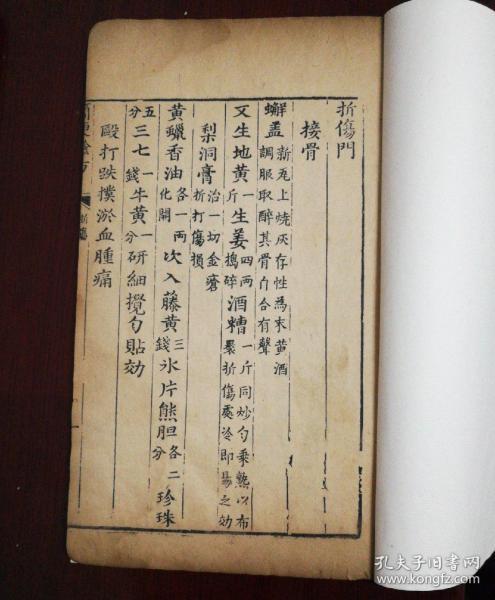 折傷門
接骨
蠏盖新瓦上燒灰存性為末黄酒調服取醉其骨自合有聲
又生地黄一斤生姜四两搗碎酒糟一斤同炒勻乘熱以布裹折傷處冷即易之効
梨洞膏治一切金瘡折打傷損
黄蠟香油各一两化開次入藤黄三錢氷片熊胆各二分珍珠
五分三七一錢牛黄一分研細攪勻貼効
毆打跌撲淤血腫痛
孔夫子旧书网
www.kongfz.com